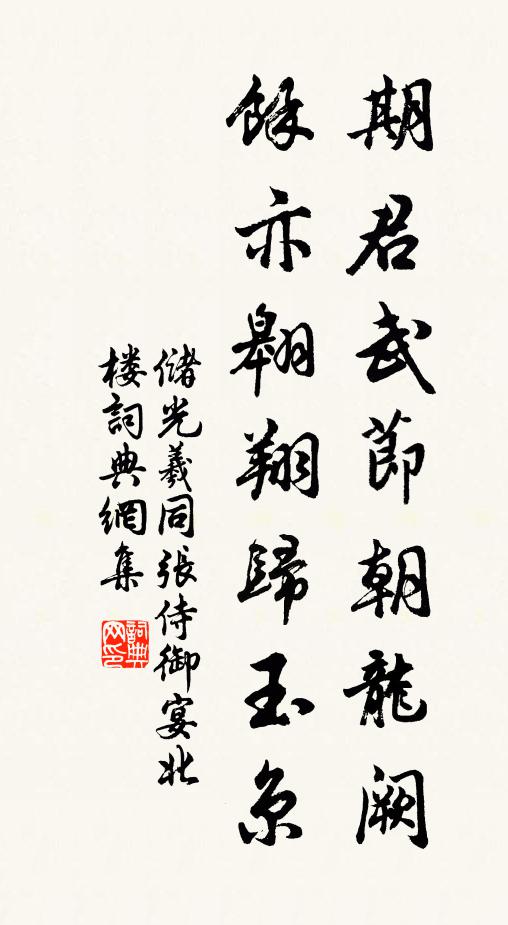 期君武節朝龍闕
餘亦翱翔歸玉京
儲光羲同張侍御宴北
楼詞典網集
詞典
网印